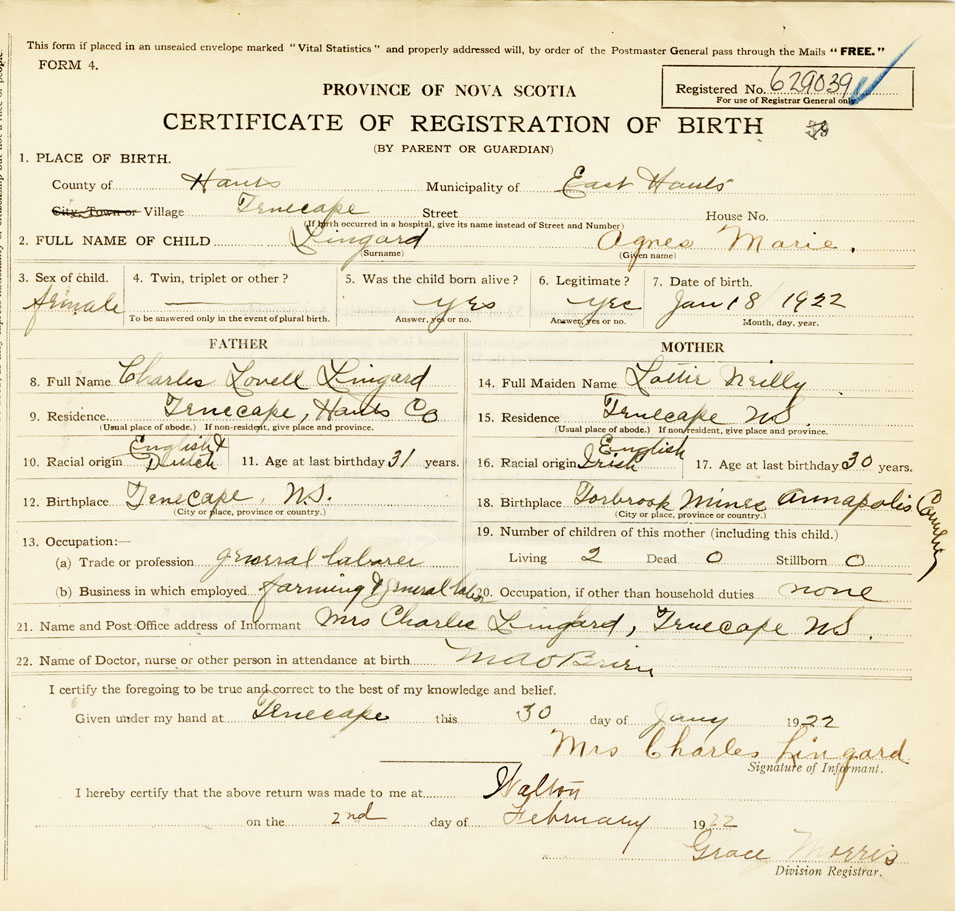 This form if placed in an unsealed envelope marked "Vital Statistics" and properly addressed will, by order of the Postmaster General pass through the Mails "FREE."
FORM 4.
Registered No. 629039
For use of Registrar General only.
PROVINCE OF NOVA SCOTIA
CERTIFICATE OF REGISTRATION OF BIRTH
(BY PARENT OR GUARDIAN)
1. PLACE OF BIRTH.
County of Hants Municipality of East Hants
City, Town or Village Tenecape Street House No.
(If birth occurred in a hospital, give its name instead of Street and Number)
2. FULL NAME OF CHILD Lingard Agnes Marie.
(Surname) (Given name)
3. Sex of child. 4. Twin, triplet or other? 5. Was the child born alive? 6. Legitimate? 7. Date of birth.
female yes yes Jan 18/1922
To be answered only in the event of plural birth. Answer, yes or no. Answer, yes or no. Month, day, year.
FATHER MOTHER
8. Full Name Charles Lovell Lingard 14. Full Maiden Name Lottie Neilly
9. Residence Tenecape, Hants Co 15. Residence Tenecape NS.
(Usual place of abode.) If non-resident, give place and province. (Usual place of abode.) If non-resident, give place and province.
10. Racial origin English & Dutch 11. Age at last birthday 31 years. 16. Racial origin English Irish 17. Age at last birthday 30 years.
12. Birthplace Tenecape, NS. 18. Birthplace Torbrook Mines Annapolis County
(City or place, province or country.) (City or place, province or country.)
13. Occupation:— 19. Number of children of this mother (including this child.)
(a) Trade or profession general laborer Living 2 Dead 0 Stillborn 0
(b) Business in which employed farming & general labor 20. Occupation, if other than household duties none
21. Name and Post Office address of Informant Mrs Charles Lingard, Tenecape NS.
22. Name of Doctor, nurse or other person in attendance at birth M A O'Brien
I certify the foregoing to be true and correct to the best of my knowledge and belief.
Given under my hand at Tenecape this 30 day of Jany 1922
Mrs Charles Lingard
Signature of Informant.
I hereby certify that the above return was made to me at Walton
on the 2nd day of February 1922
Grace Morris
Division Registrar.